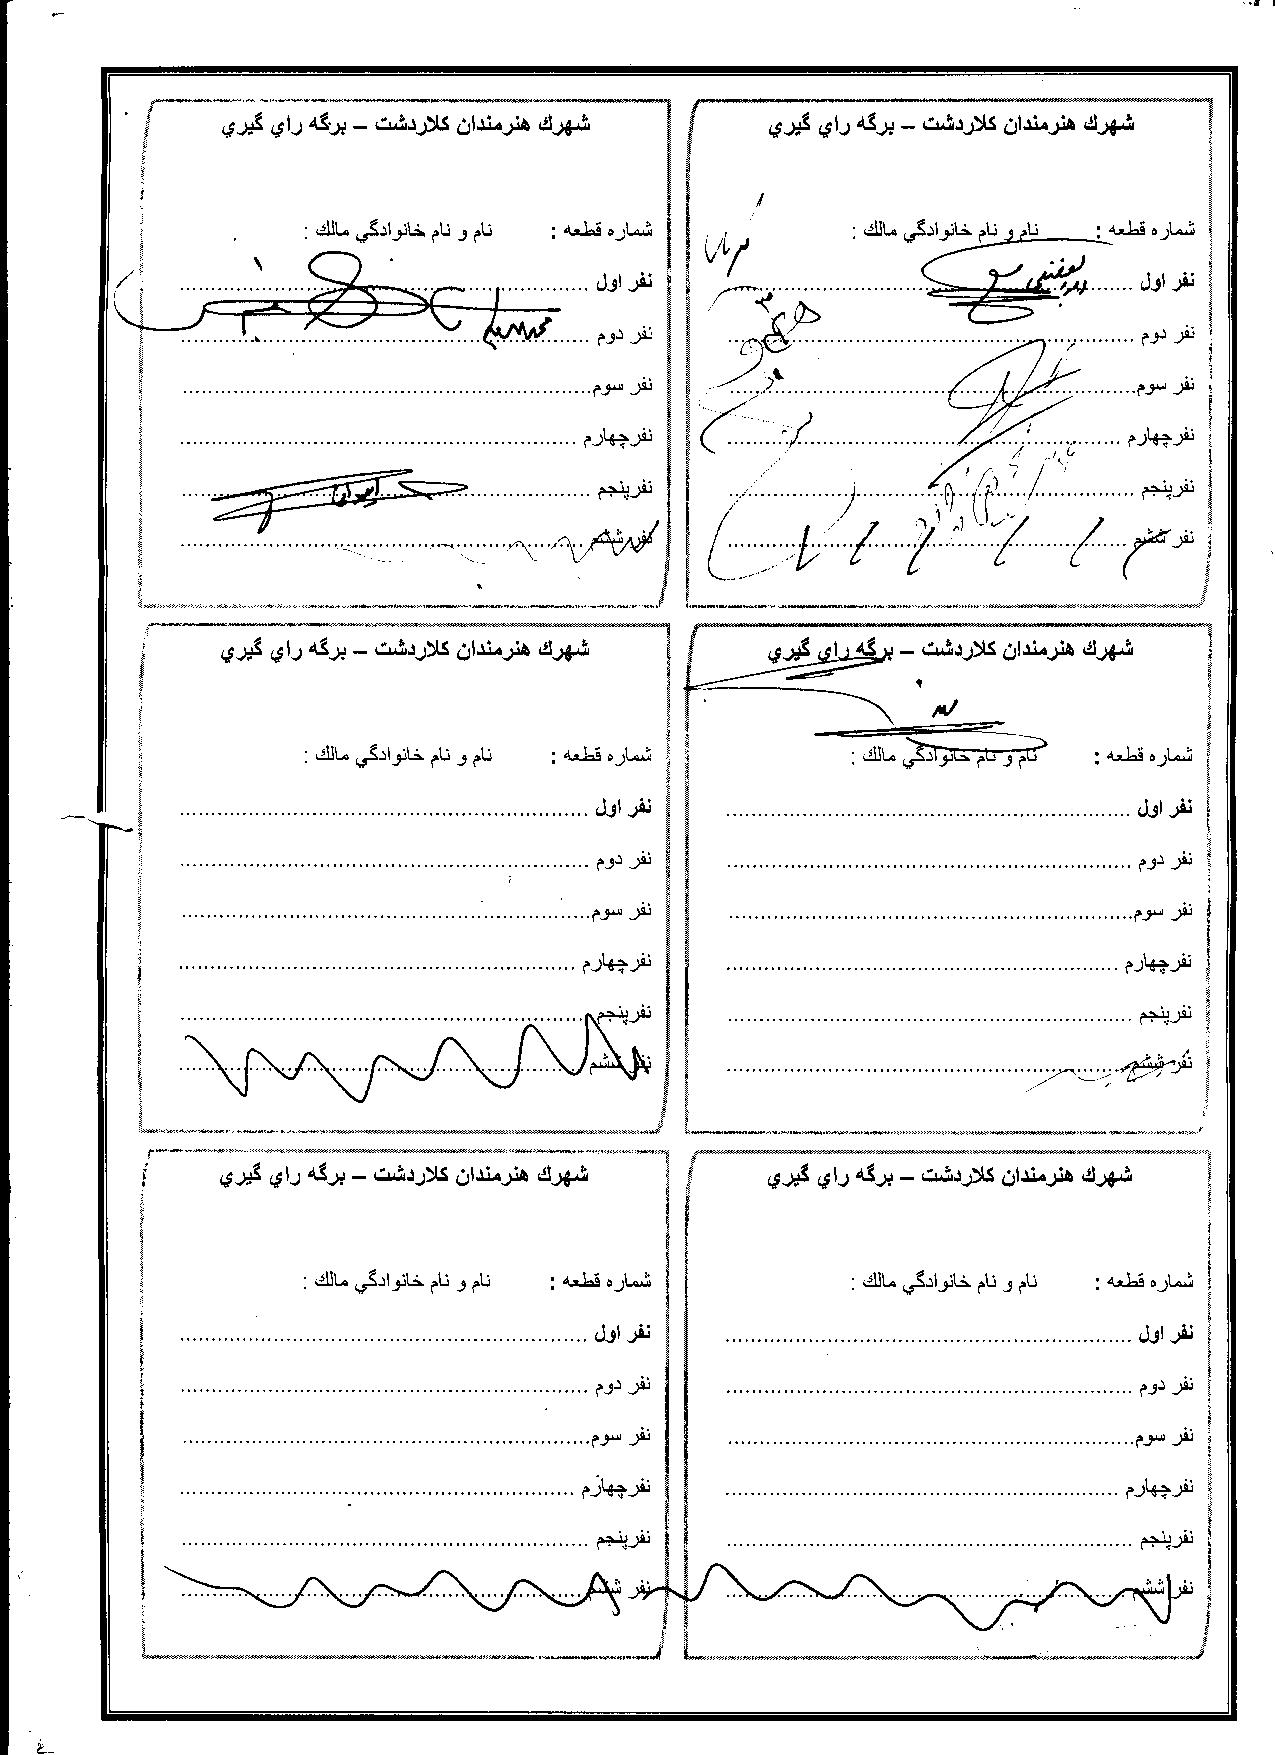 شهرك هنرمندان كلاردشت – برگه راي گيري
شماره قطعه : نام و نام خانوادگي مالك :
نفر اول ........................................
نفر دوم ........................................
نفر سوم........................................
نفرچهارم ........................................
نفرپنجم ........................................
نفر ششم ........................................
شهرك هنرمندان كلاردشت – برگه راي گيري
شماره قطعه : نام و نام خانوادگي مالك :
نفر اول ........................................
نفر دوم ........................................
نفر سوم........................................
نفرچهارم ........................................
نفرپنجم ........................................
نفر ششم ........................................
شهرك هنرمندان كلاردشت – برگه راي گيري
شماره قطعه : نام و نام خانوادگي مالك :
نفر اول ........................................
نفر دوم ........................................
نفر سوم........................................
نفرچهارم ........................................
نفرپنجم ........................................
نفر ششم ........................................
شهرك هنرمندان كلاردشت – برگه راي گيري
شماره قطعه : نام و نام خانوادگي مالك :
نفر اول ........................................
نفر دوم ........................................
نفر سوم........................................
نفرچهارم ........................................
نفرپنجم ........................................
نفر ششم ........................................
شهرك هنرمندان كلاردشت – برگه راي گيري
شماره قطعه : نام و نام خانوادگي مالك :
نفر اول ........................................
نفر دوم ........................................
نفر سوم........................................
نفرچهارم ........................................
نفرپنجم ........................................
نفر ششم ........................................
شهرك هنرمندان كلاردشت – برگه راي گيري
شماره قطعه : نام و نام خانوادگي مالك :
نفر اول ........................................
نفر دوم ........................................
نفر سوم........................................
نفرچهارم ........................................
نفرپنجم ........................................
نفر ششم ........................................